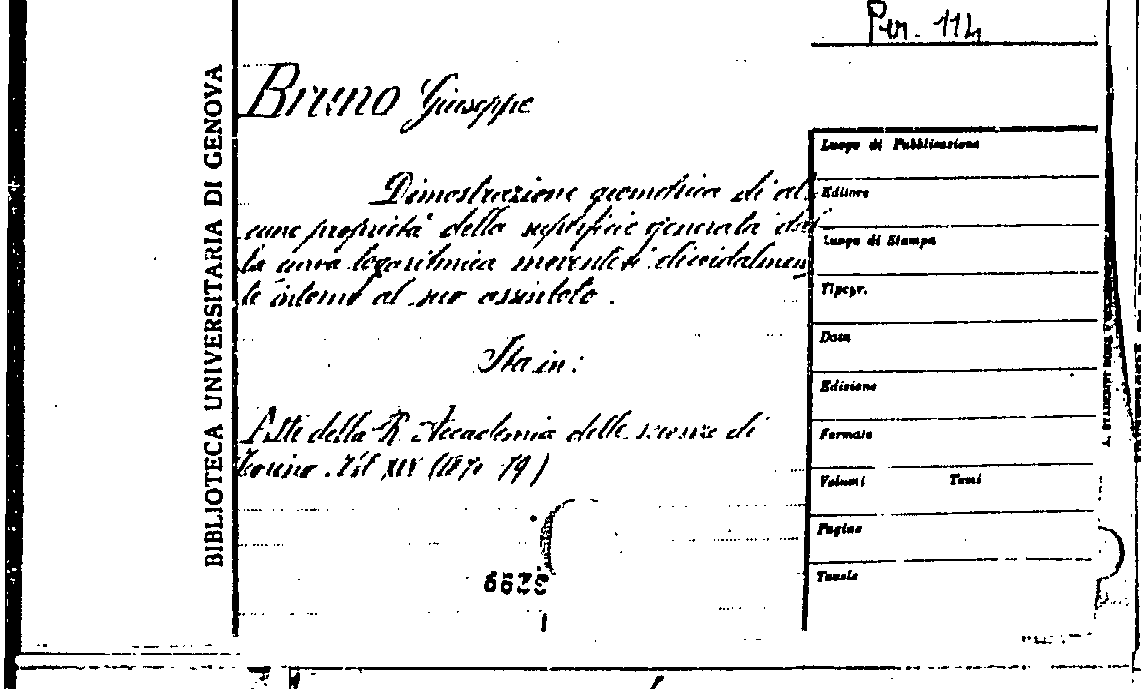 Per. 114
BIBLIOTECA UNIVERSITARIA DI GENOVA
Bruno Giuseppe
Dimostrazione geometrica di al-
cune proprietà della superficie generata dal
la curva logaritmica moventesi elicoidalmen
te intorno al suo assintoto.
Sta in:
Atti della R. Accademia delle scienze di
Torino. Vol XIV (187 79)
Luogo di Pubblicazione
Editore
Luogo di Stampa
Tipogr.
Data
Edizione
Formato
Volumi Tomi
Pagine
Tavole